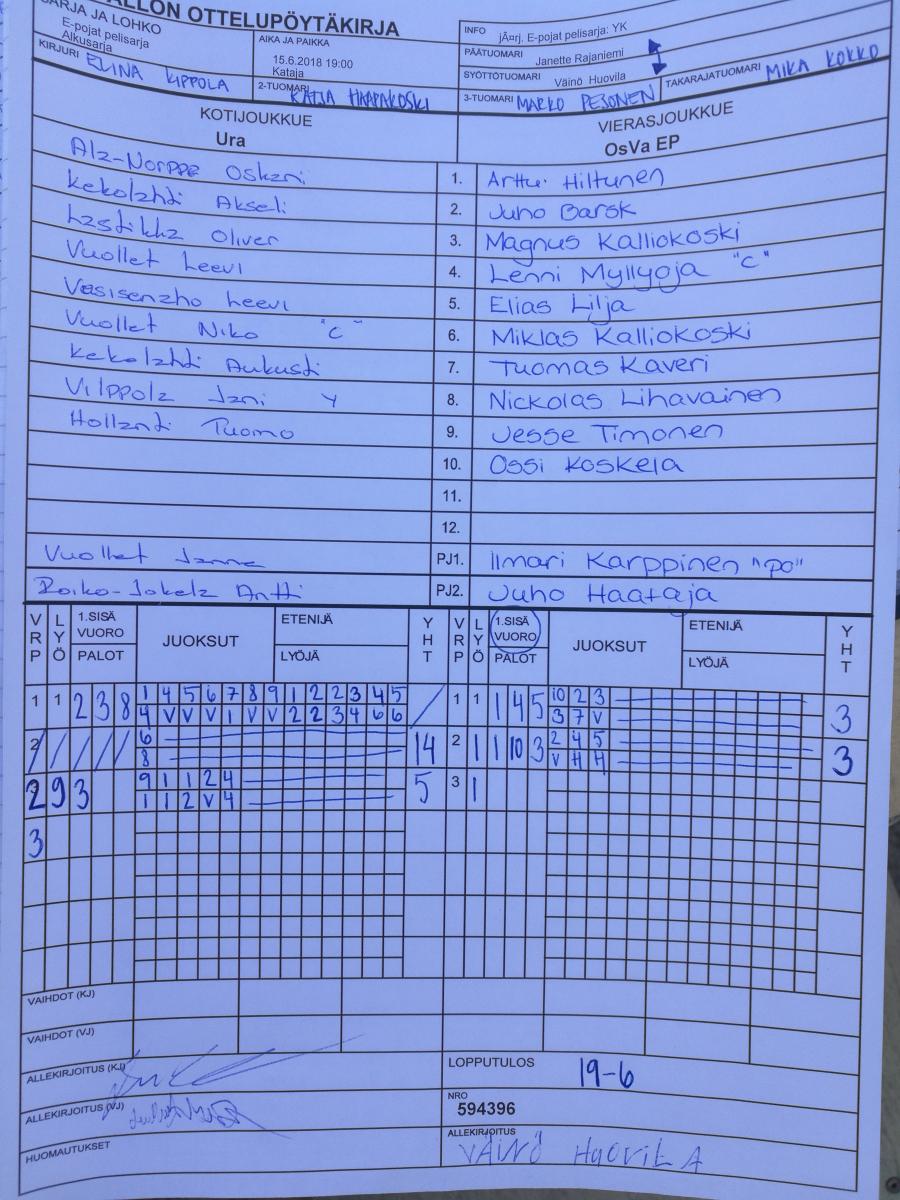 ALLON OTTELUPÖYTÄKIRJA
SARJA JA LOHKO
E-pojat pelisarja
Alkusarja
AIKA JA PAIKKA
15.6.2018 19:00
Kataja
INFO jÃ¤rj. E-pojat pelisarja: YK
PÄÄTUOMARI Janette Rajaniemi
SYÖTTÖTUOMARI Väinö Huovila TAKARAJATUOMARI MIKA KOKKO
KIRJURI ELINA KIPPOLA 2-TUOMARI KATJA HAAPAKOSKI 3-TUOMARI MARKO PESONEN
KOTIJOUKKUE
Ura
VIERASJOUKKUE
OsVa EP
Ala-Norppa Oskari 1. Arttu Hiltunen
Kekolahti Akseli 2. Juho Barsk
Lastikka Oliver 3. Magnus Kalliokoski
Vuollet Leevi 4. Lenni Myllyoja "C"
Väsisenaho Leevi 5. Elias Lilja
Vuollet Niko "C" 6. Miklas Kalliokoski
Kekolahti Aukusti 7. Tuomas Kaveri
Vilppola Jani Y 8. Nickolas Lihavainen
Hollanti Tuomo 9. Jesse Timonen
10. Ossi Koskela
11.
12.
Vuollet Janne PJ1. Ilmari Karppinen "po"
Roiko-Jokela Antti PJ2. Juho Haataja
VRP LYÖ 1.SISÄ VUORO PALOT JUOKSUT ETENIJÄ LYÖJÄ YHT VRP LYÖ 1.SISÄ VUORO PALOT JUOKSUT ETENIJÄ LYÖJÄ YHT
1 1 2 3 8 1 4 5 6 7 8 9 1 2 2 3 4 5 / 1 1 1 4 5 10 2 3 3
4 V V V 1 V V 2 2 3 4 6 6 3 7 V
2 / / / / 6 14 2 1 1 10 3 2 4 5 3
8 V H H
2 9 3 9 1 1 2 4 5 3 1
1 1 2 V 4
3
VAIHDOT (KJ)
VAIHDOT (VJ)
ALLEKIRJOITUS (KJ)
LOPPUTULOS 19-6
ALLEKIRJOITUS (VJ)
NRO
594396
HUOMAUTUKSET
ALLEKIRJOITUS
VÄINÖ HUOVILA